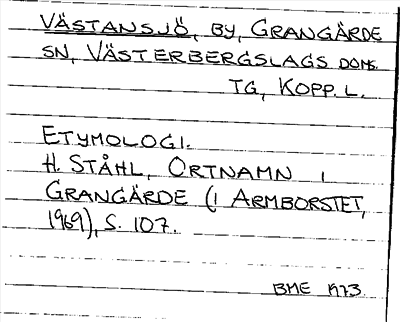 VÄSTANSJÖ, BY, GRANGÄRDE
SN, VÄSTERBERGSLAGS DOMS.
TG, KOPP. L.
ETYMOLOGI.
H. STÅHL, ORTNAMN I
GRANGÄRDE (I ARMBORSTET,
1969), S. 107.
BME 1973.